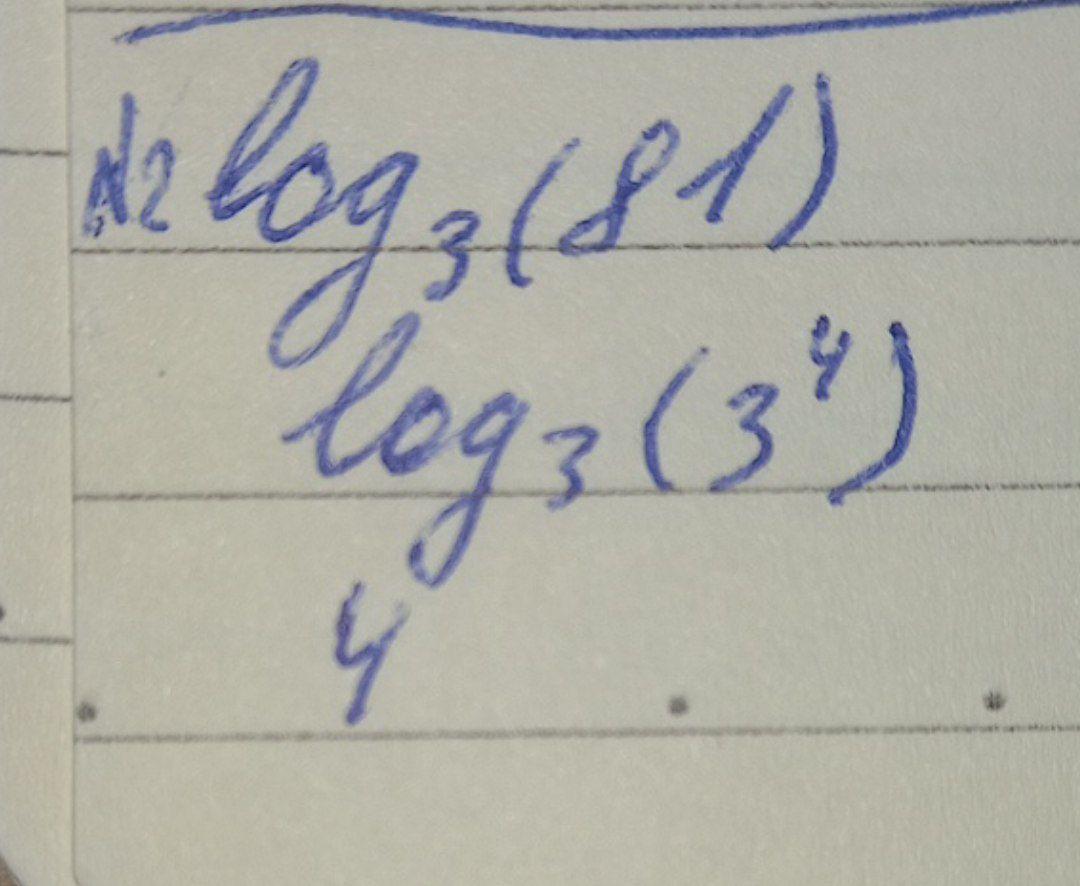 N2 log₃(81)
log₃(3⁴)
4